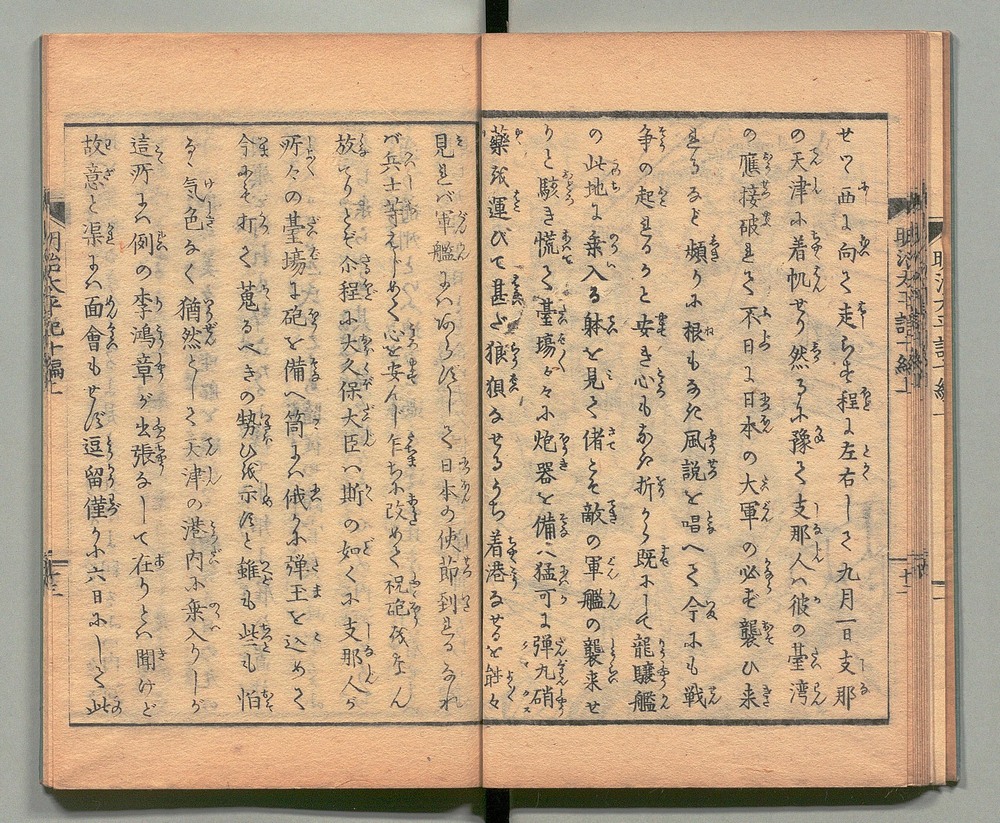 せて西に向て走らす程に左右して九月一日支那
の天津に着帆せり然るに豫て支那人ハ彼の臺湾
の應接破れて不日に日本の大軍の必す襲ひ来
れるなど頻りに根もなき風説を唱へて今にも戦
争の起れるかと安き心もなき折から既にして龍驤艦
の此地に乗入る躰を見て偖こそ敵の軍艦の襲来せ
りと駭き慌て臺場々々に炮器を備へ猛可に弾丸硝
藥を運びて甚だ狼狽なせるうち着港なせるを能々
見れバ軍艦にハあらずして日本の使節到れるなれ
バ兵士等はじめて心を安んじ乍ちに改めて祝砲をなん
放てりとぞ尒程に大久保大臣ハ斯の如くに支那人が
所々の臺場に砲を備へ筒にハ俄かに弾玉を込めて
今にも打て蒐るべきの勢ひを示すと雖も些も怕
るゝ気色なく猶然として天津の港内に乗入りしが
這所にハ例の李鴻章が出張なして在りとハ聞けど
故意と渠にハ面會もせず逗留僅かに六日にして此
明治太平記十編上
十二